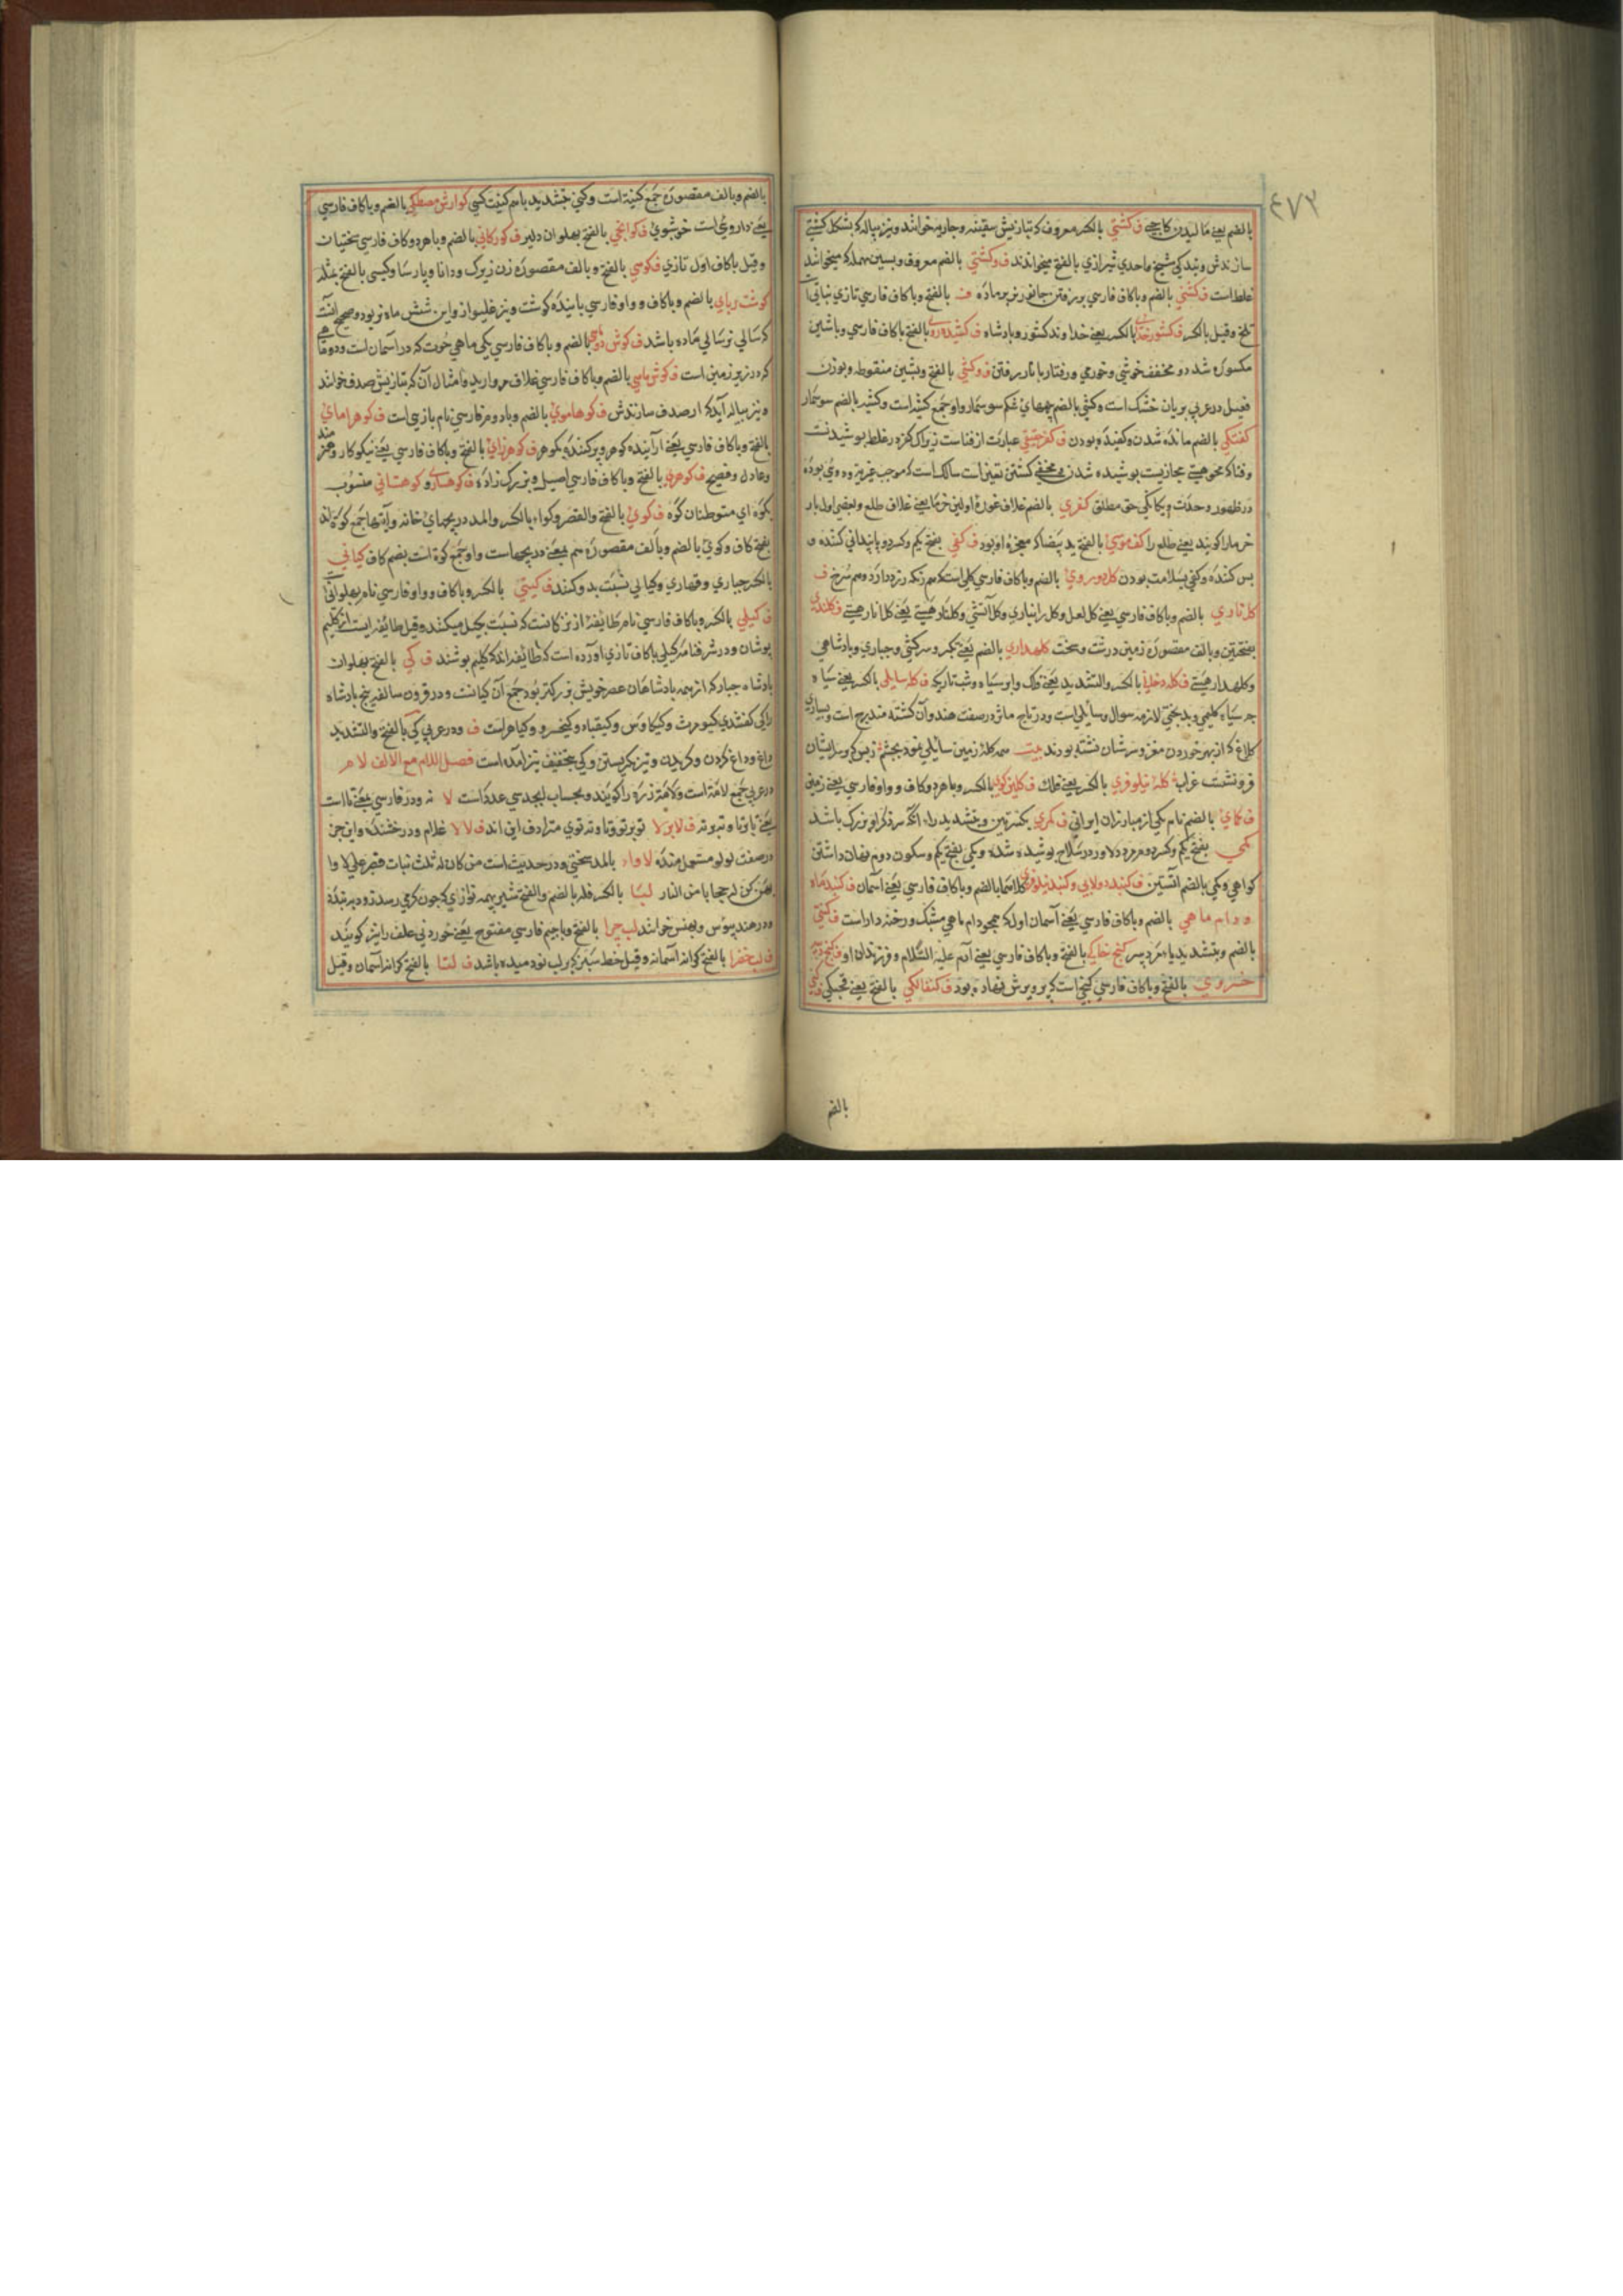 ٤٧٣
بالضم یعنی مالیدن کاچی ف کشتی بالکسر معروف که بتازیش سفینه و جاریه خوانند و نیز پیاله که بشکل کشتی
سازندش شیخ واحدی شیرازی بالفتح میخواندند ف وکشتی بالضم معروف و بسین مهمله که میخوانند
غلط است ف کشنی بالضم و باکاف فارسی بالفتح و باکاف فارسی تازی
تلخ و قیل بالکسر ف کشور خدای بالکسر یعنی خداوند کشور و پادشاه ف بالفتح باکاف فارسی و باشین
مکسوره شد دو مخفف خوشی و خورمی و رفتار با ناز رفتن ف وکشی بالفتح وبشین منقوطه و بوزن
فعیل در عربی بریان خشک است وکشی بالضم شکم سوسمار و او جمع کشیه است وکشیه بالضم سوسمار
بالضم مانده شدن وکفیده بودن ف کفر حقیقی عبارت از فناست زیراکه کفر در غلط پوشیدنست
وفنا که محو هستی مجازیست پوشیده شدن و مخفی کشتن تعین است سالک است که موجب غیریت و دوئی بوده
در ظهور وحدت و یکانکی حق مطلق کفری بالضم غلاف غوره اولین خرما یعنی غلاف طلع و بعضی اول بار
خرما را کویند یعنی طلع را کف موسی بالفتح ید بیضا که معجزه او بود ف کفی بفتح یکم وکسر دوم کننده و
بس کننده وکفی بسلامت بودن کل دوروی بالضم و باکاف فارسی کلی است که هم رنکه زرد دارد و هم سرخ ف
کلناری بالضم و باکاف فارسی یعنی کل لعل وکل وکل آتشی وکلنار هستی یعنی کل انار هستی ف کلندی
بفتحتین و بالف مقصوره زمین درشت و سخت کلهداری بالضم یعنی تکبر و سرکشی و جباری و پادشاهی
وکلهدار هستی ف بالکسر والتشدید یعنی فلک و ابر سیاه و شب تاریکه ف کله سایلی باکسر یعنی سیاه
چه سیاه کلیمی و بدبختی لازمه سوال و سایلی است و در تاج ماثر در صفت هندوان کشته مندرج است و بسیاری
کلاغ که از بهر خوردن مغز و سرشان نشسته بودند بیت همه کله زمین سایلی نمود بچشم ز بس که بر سر ایشان
فرو نشست غراب کله نیلوفری بالکسر یعنی فلک ف کلین کوی بالکسر و باهر دو کاف و واو فارسی یعنی زمین
ف کمای بالضم نام یکی از مبارزان ایرانی ف کمری بکسرتین و بتشدید راء آنکه سر ذکر او بزرک باشد
کمی بفتح یکم وکسر دوم مرد دلاور در سلاح پوشیده شده وکمی بفتح یکم و سکون دوم پنهان داشتن
کواهی وکمی بالضم آستین ف کنبد دولابی وکنبد نیلوفری بالضم و باکاف فارسی یعنی آسمان ف کنبد ماه
ودام ماهی بالضم و باکاف فارسی یعنی آسمان اول که همچو دام ماهی مشبک و رخنه دار است ف کنتی
بالضم و بتشدید یاء مرد پیر کنج خاکی بالفتح و باکاف فارسی یعنی آدم علیه السلام و فرزندان او ف کنج
خسروی بالفتح و باکاف فارسی کنجی است که پرویزش نهاده بود ف کنفالکی بالفتح یعنی قحبکی ف کنی
بالضم
بالضم و بالف مقصوره جمع کنیه است وکنی بتشدید یا هم کنیت کسی کوارش مصطکی بالضم و باکاف فارسی
یعنی دارویی است خوشبوی ف بالفتح پهلوان دلیر ف کورکانی بالضم و باهر دو کاف فارسی سختیان
و قیل باکاف اول تازی ف کوسی بالفتح و بالف مقصوره زن زیرک و دانا و پارسا وکیسی بالفتح مثله
کوشت ربای بالضم و باکاف و واو فارسی یابنده کوشت و نیز غلیواز و این شش ماه نر بود و صحیح آنست
که سالی نر سالی ماده باشد ف کوش ماهی بالضم و باکاف فارسی یکی ماهی حوت که در آسمان است و دوم
که در زیر زمین است ف کوش ماهی بالضم و باکاف فارسی غلاف مروارید و امثال آن که بتازیش صدف خوانند
و نیز پیاله آید که از صدف سازندش ف کوهاموی بالضم و باو و فارسی نام بازی است ف کوهر امای
بالفتح و باکاف فارسی یعنی آراینده کوهر و پر کننده بکوهر ف کوهر زای بالفتح و باکاف فارسی یعنی نیکوکار و هنرمند
و عادل و فصیح ف کوهری بالفتح و باکاف فارسی اصیل و بزرک زاده ف کوهسار و کوهستانی منسوب
بکوه ای متوطنان کوه ف کوی بالفتح والقصر وکواء بالکسر والمد دریچهای خانه جمع کوة اند
بفتح کاف وکوی بالضم و بالف مقصوره هم بمعنی دریچهاست و او جمع کوة است بضم کاف کیانی
بالکسر جباری و قهاری وکیانی نسبت بدو کنند ف کیتی بالکسر و باکاف و واو فارسی نام پهلوانی
ف کیلی بالکسر و باکاف فارسی نام طایفه از بزرکانست که نسبت بجیل میکنند و قیل طایفه ایست از کلیم
پوشان و در شرفنامه کیلی باکاف تازی اورده است که طائفه اند که کلیم پوشند ف کی بالفتح پهلوان
پادشاه جبار که از همه پادشاهان عصر خویش بزرکتر بود جمع آن کیانست و در قرون سالفه پنج پادشاه
را کی کفتندی کیومرث وکیکاوس وکیقباد وکیخسرو وکی لهراسب ف و در عربی کی بالفتح والتشدید
داغ و داغ کردن و تیز نکریستن وکی بتخفیف نیز آمده است فصل اللام مع الالف لام
در عربی جمع لامة است و لامة زره را کویند و بحساب ابجد سی عدد است لا نه و در فارسی بمعنی تا است
یعنی تا و تا وته و ته ف لابرلا توبرتو و تا و ته و توی مترادف این اند ف لالا غلام و درخشنده و این جز
در صفت لولو مستعمل مانده لاواء بالمد سختی و در حدیث است من کان له ثلث بنات فصبر علی لاوا
بهن کن له حجابا من النار لبا بالکسر والضم والفتح شیر
ودر هند پیوس و پیوس خوانند لب چرا بالفتح و باجیم فارسی مفتوح یعنی خوردنی علف را نیز کویند
ف لب خضرا بالفتح کرانه آسمانه و قیل خط سبز که بر لب نودمیده باشد ف لبنا بالفتح کرانه آسمان و قیل